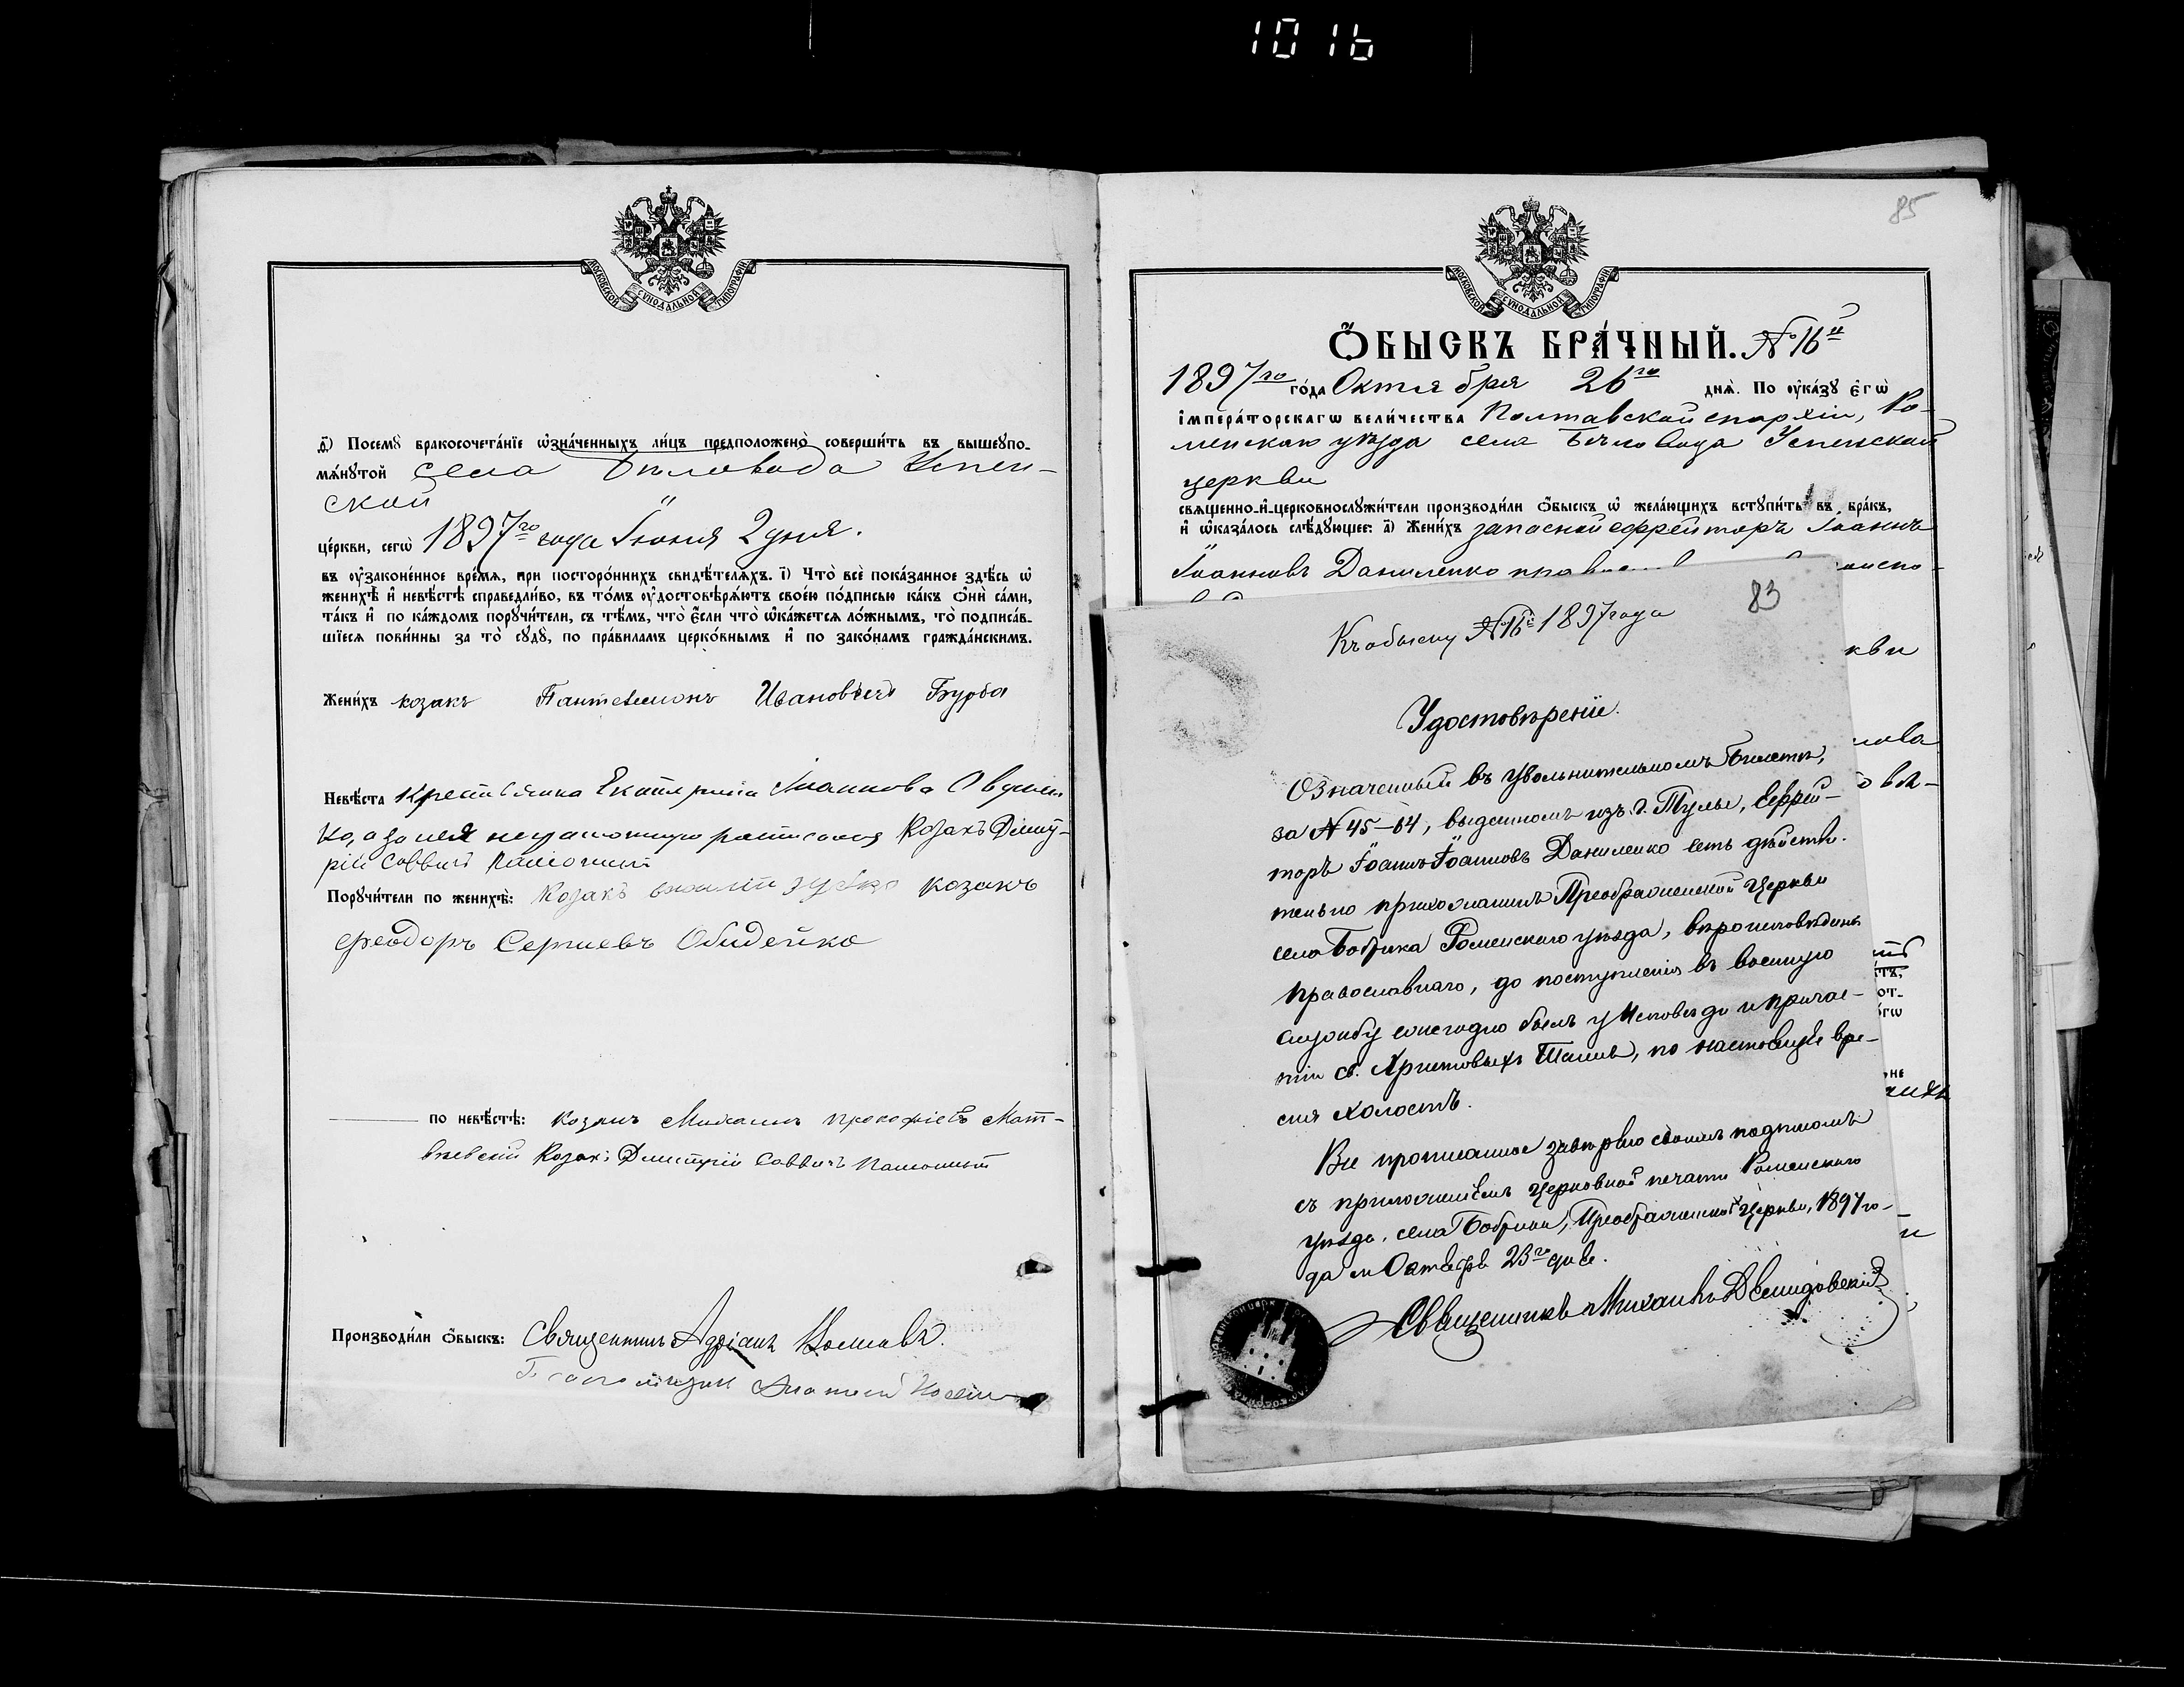 1016
МОСКОВСКОЙ СѴНОДАЛЬНОЙ ТИПОГРАФІИ
ѳ҃) Посемꙋ бракосочета́нїе ѡ҆зна́ченныхъ ли́цъ предположено̀ соверши́ть въ вышеꙋпо-
мѧ́нꙋтой села Бѣловода Успен-
ской
це́ркви, сегѡ̀ 1897го года Іюня 2 дня.
въ ᲂу҆зако́ненное вре́мѧ, при посторо́ннихъ свидѣ́телѧхъ. і҃) Что̀ всѐ пока́занное здѣ́сь ѡ҆
женихѣ̀ и҆ невѣ́стѣ справедли́во, въ то́мъ ᲂу҆достовѣрѧ́ютъ свое́ю по́дписью ка́къ ѻ҆нѝ са́ми,
та́къ и҆ по ка́ждомъ порꙋчи́тели, съ тѣ́мъ, что̀ є҆́сли что̀ ѡ҆ка́жетсѧ ло́жнымъ, то̀ подписа́в-
шїесѧ пови́нны за то̀ сꙋдꙋ̀, по пра́виламъ церко́внымъ и҆ по зако́намъ гражда́нскимъ.
Жени́хъ козакъ Пантелимонъ Ивановъ Бурба
Невѣ́ста крестьянка Екатерина Іоаннова Овдіен
ко, а за нея неграмотную росписался Козакъ Дмит-
рій Саввич
Порꙋчи́тели по женихѣ̀: Козакъ козакъ
Феодоръ Сергиевъ Обидейко
по невѣ́стѣ: козакъ Михаилъ Прокофіевъ Мат-
вѣевскій Козакъ Дмитрій Саввичъ
Производи́ли ѻ҆́быскъ: Священникъ Адріанъ
85
МОСКОВСКОЙ СѴНОДАЛЬНОЙ ТИПОГРАФІИ
Ѻ҆́БЫСКЪ БРА́ЧНЫЙ. № 16й
1897го го́да Октября 26го днѧ̀. По ᲂу҆ка́зꙋ є҆гѡ̀
і҆мпера́торскагѡ вели́чества Полтавской епархіи, Ро-
менскаго уѣзда села Бѣловода Успенской
церкви
свѧщенно-и҆-церковнослꙋжи́тели производи́ли ѻ҆́быскъ ѡ҆ жела́ющихъ встꙋпи́ть въ бра́къ,
и҆ ѡ҆каза́лось слѣ́дꙋющее: а҃) Жени́хъ запасной ефрейторъ Іоаннъ
Іоанновъ Даниленко
кви
83
Къ обыску № 16й 1897 года
Удостовѣреніе.
Означенный въ увольнительномъ билетѣ,
за № 45–64, выданномъ изъ г. Тулы, Ефрей-
торъ Іоаннъ Іоанновъ Даниленко есть дѣйстви-
тельно прихожанинъ Преображенской церкви
села Бобрика Роменскаго уѣзда, вѣроисповѣданія
православнаго, до поступленія въ военную
службу ежегодно былъ у исповѣди и причас-
тія св. Христовыхъ Таинъ, по настоящее вре-
мя холостъ.
Все прописанное завѣряю своимъ подписомъ
съ приложеніемъ церковной печати Роменскаго
уѣзда, села Бобрика, Преображенской церкви, 1897 го-
да м. Октября 23го дня.
Священникъ Михаилъ Демидовскій